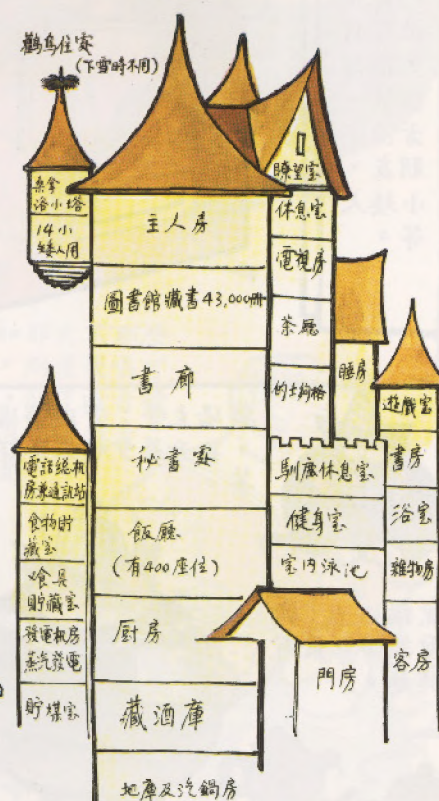 鸛鳥住家
(下雪時不同)
桑拿
浴小塔
14小
矮人用
主人房
圖書館藏書43,000冊
書廊
秘書室
飯廳
(有400座位)
厨房
藏酒庫
地庫及汽鍋房
瞭望室
休息室
電視房
茶廳
的士高格
睡房
馴鹿休息室
健身室
室内泳池
門房
遊戲室
書房
浴室
雜物房
客房
電話總機
房兼通訊站
食物貯
藏室
食具
貯藏室
發電机房
蒸汽發電
貯煤室